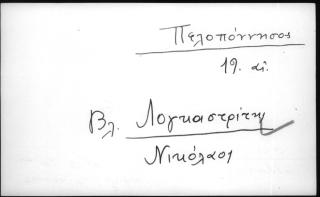 Πελοπόννησος
19. αἰ.
Βλ. Λογκαστρίτη
Νικόλαος